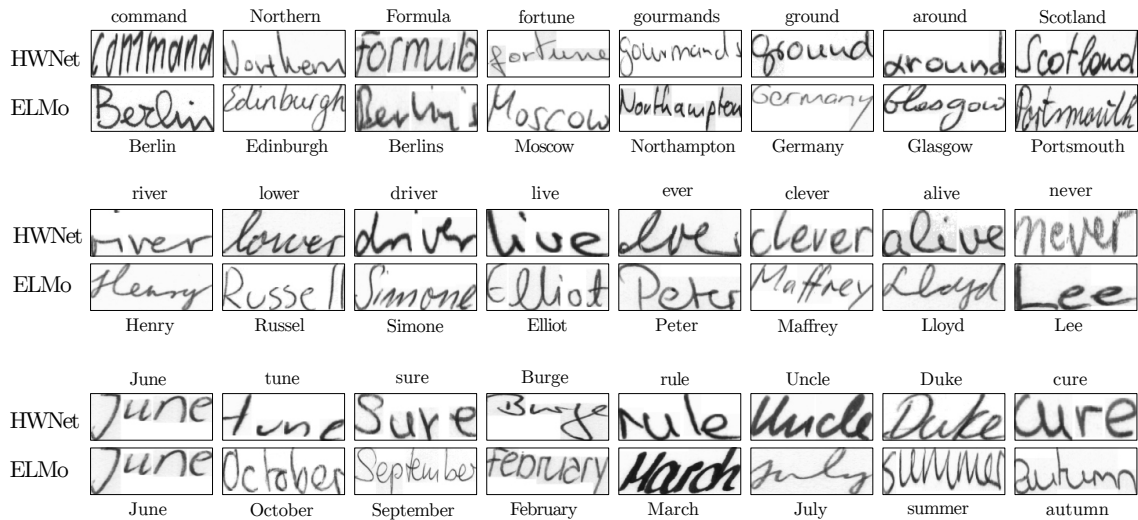 command Northern Formula fortune gourmands ground around Scotland
HWNet command Northern Formula fortune gourmands ground around Scotland
ELMo Berlin Edinburgh Berlin's Moscow Northampton Germany Glasgow Portsmouth
Berlin Edinburgh Berlins Moscow Northampton Germany Glasgow Portsmouth
river lower driver live ever clever alive never
HWNet river lower driver live ever clever alive never
ELMo Henry Russell Simone Elliot Peter Maffrey Lloyd Lee
Henry Russel Simone Elliot Peter Maffrey Lloyd Lee
June tune sure Burge rule Uncle Duke cure
HWNet June tune Sure Burge rule Uncle Duke cure
ELMo June October September February March July summer autumn
June October September February March July summer autumn